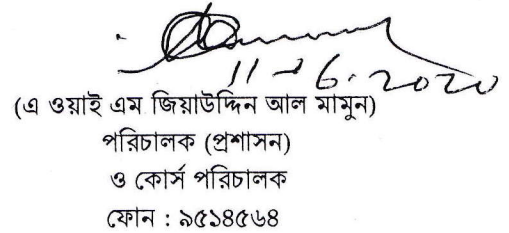 11-6-2020
(এ ওয়াই এম জিয়াউদ্দিন আল মামুন)
পরিচালক (প্রশাসন)
ও কোর্স পরিচালক
ফোন : ৯৫১৪৫৬৪